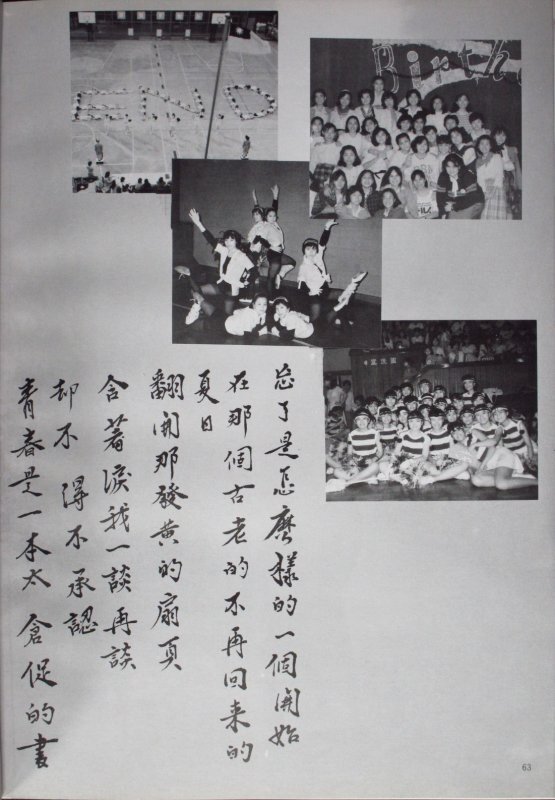 END
Birth
忘了是怎麼樣的一個開始
在那個古老的不再回來的
夏日
翻開那發黃的扇頁
含著淚我一談再談
却不得不承認
青春是一本太倉促的書
63